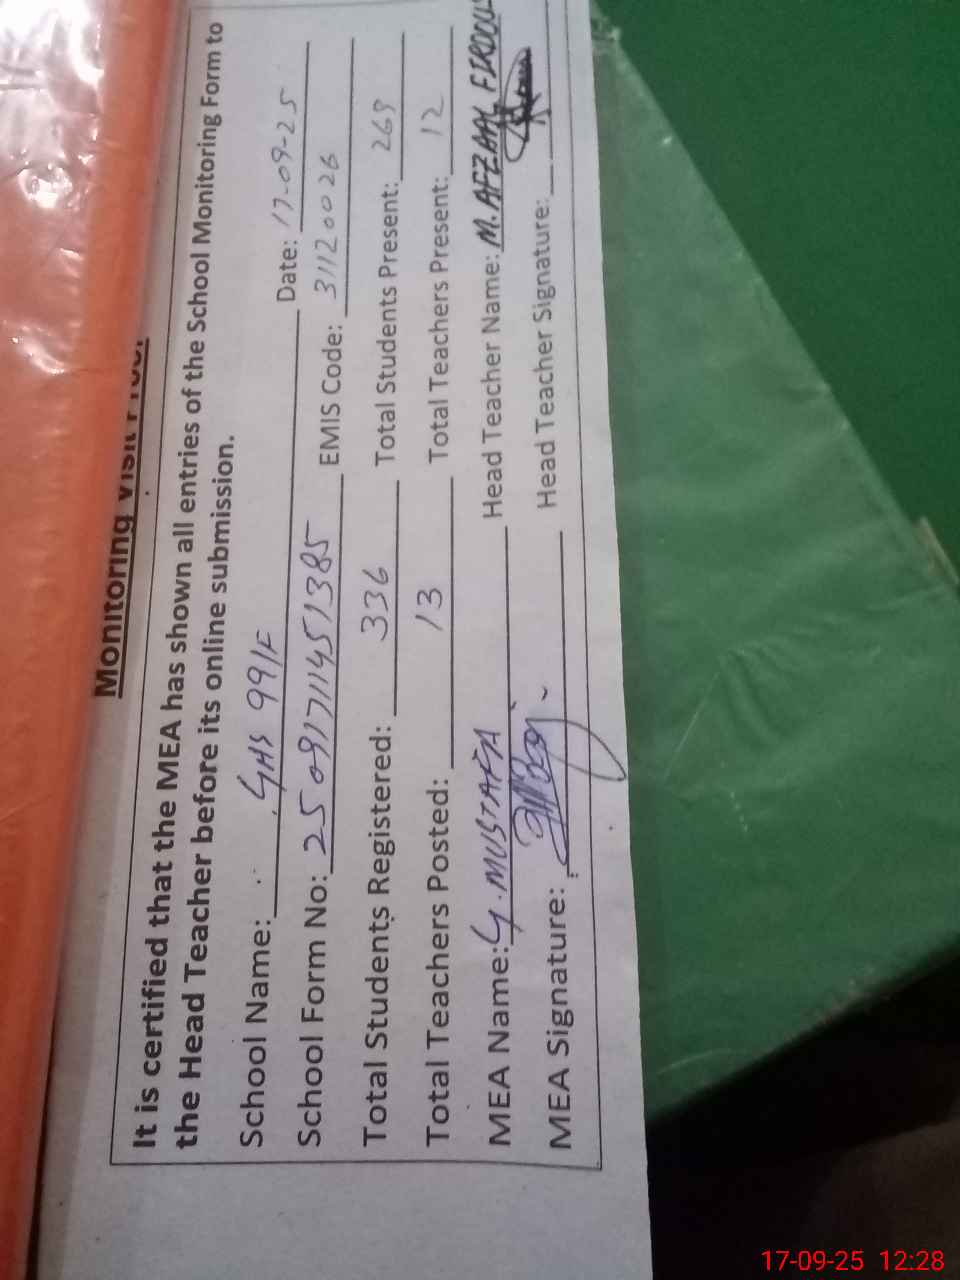 Monitoring Visit Proof
It is certified that the MEA has shown all entries of the School Monitoring Form to
the Head Teacher before its online submission.
School Name: GHS 99/F Date: 17-09-25
School Form No: 250917114551385 EMIS Code: 31120026
Total Students Registered: 336 Total Students Present: 269
Total Teachers Posted: 13 Total Teachers Present: 12
MEA Name: G. MUSTAFA Head Teacher Name: M. AFZAAL FIRDOUS
MEA Signature: Head Teacher Signature:
17-09-25 12:28